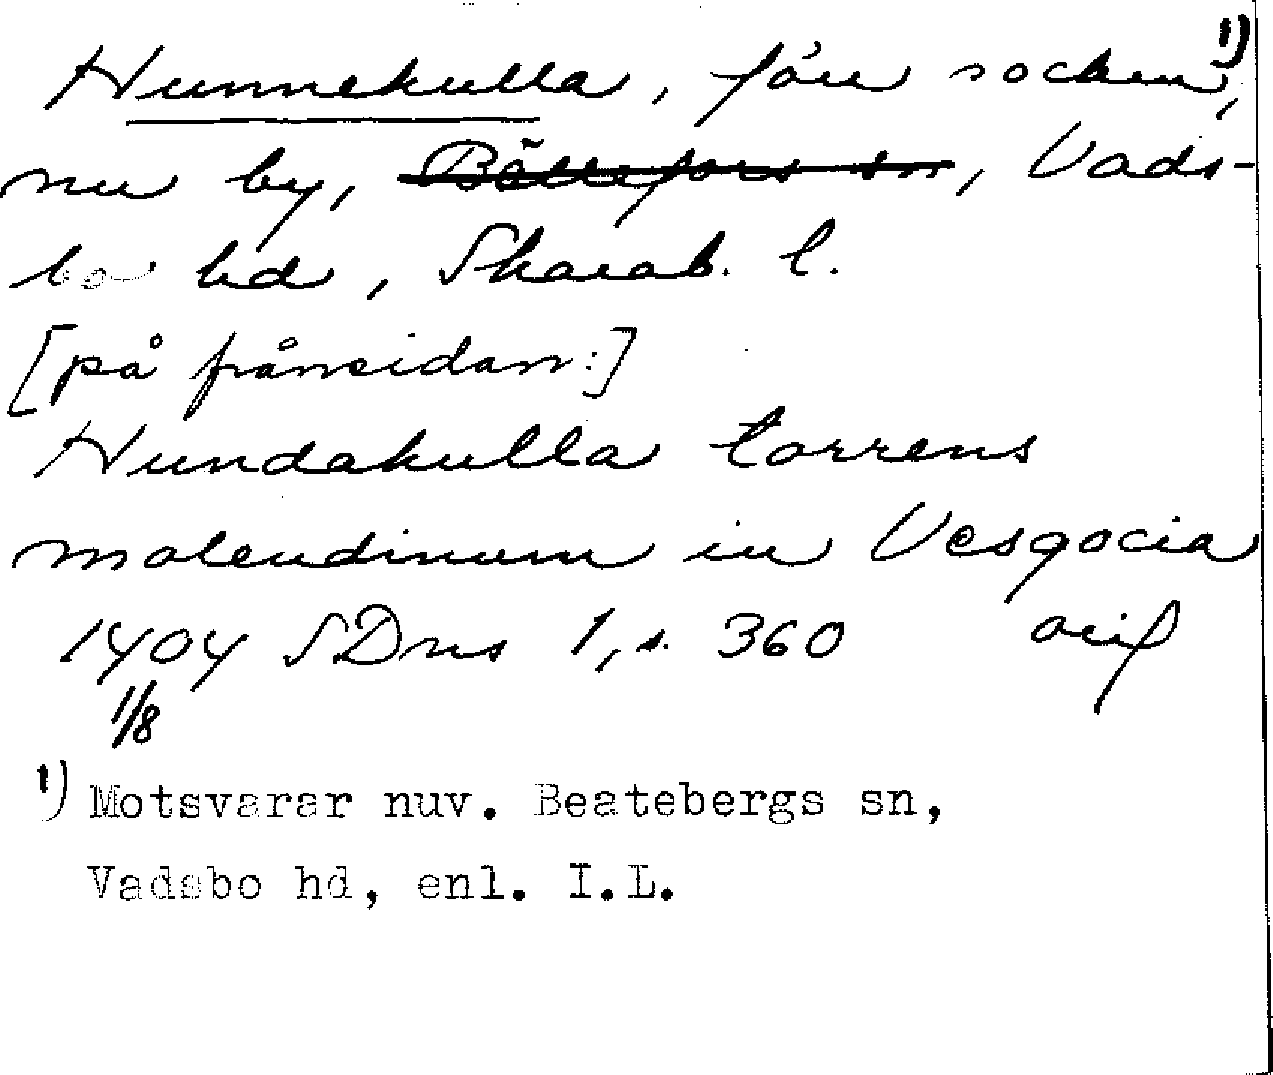 Hunnekulla, förr socken 1),
nu by, Bällefors sn, Vads-
bo hd, Skarab. l.
[på frånsidan:]
Hundakulla torrens
molendinum in Vesgocia
1404 SDns 1, s. 360 orig
1/8
1) Motsvarar nuv. Beatebergs sn,
Vadsbo hd, enl. I.L.